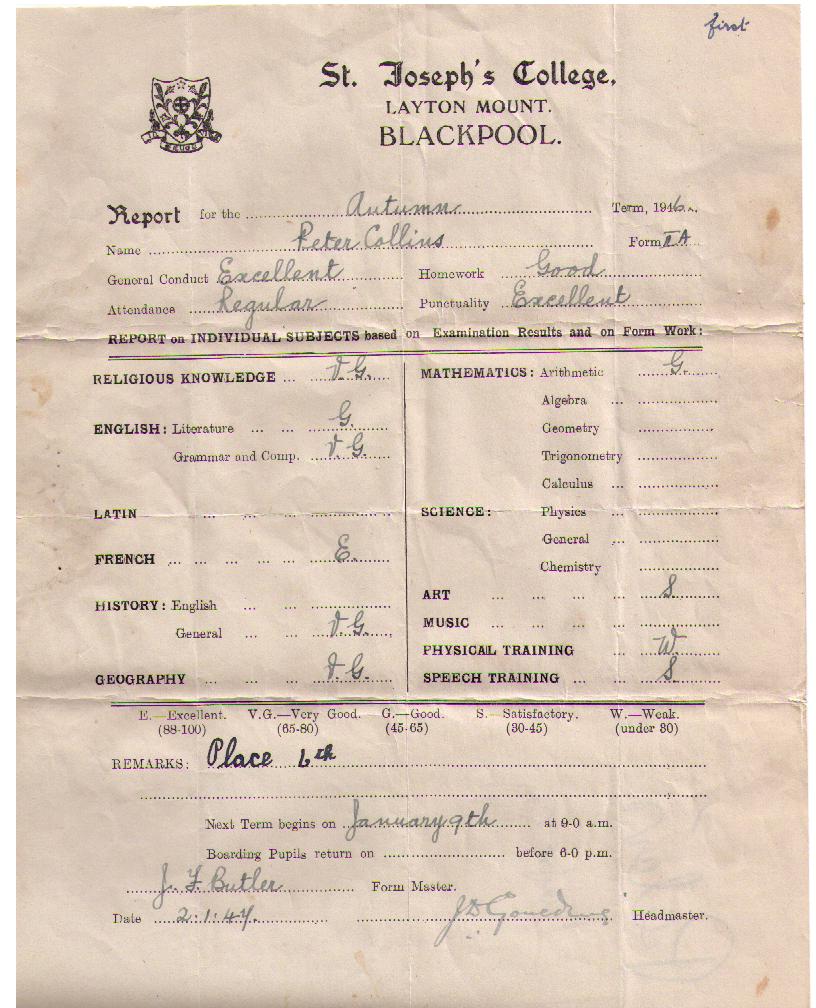 first
St. Joseph's College,
LAYTON MOUNT.
BLACKPOOL.
Report for the Autumn Term, 1946.
Name Peter Collins Form II A
General Conduct Excellent Homework Good
Attendance Regular Punctuality Excellent
REPORT on INDIVIDUAL SUBJECTS based on Examination Results and on Form Work:
RELIGIOUS KNOWLEDGE ... V.G.
ENGLISH: Literature ... ... G.
Grammar and Comp. V.G.
LATIN ... ... ...
FRENCH ... ... ... ... ... E.
HISTORY: English ... ...
General ... ... V.G.
GEOGRAPHY ... ... ... V.G.
MATHEMATICS: Arithmetic G.
Algebra ...
Geometry
Trigonometry
Calculus ...
SCIENCE: Physics ...
General ...
Chemistry
ART ... ... ... ... S
MUSIC ... ... ... ...
PHYSICAL TRAINING ... W.
SPEECH TRAINING ... ... S
E.—Excellent. V.G.—Very Good. G.—Good. S.—Satisfactory. W.—Weak.
(88-100) (65-80) (45-65) (30-45) (under 30)
REMARKS: Place 6th
Next Term begins on January 9th at 9-0 a.m.
Boarding Pupils return on before 6-0 p.m.
J. F. Butler Form Master.
Date 2.1.47. Headmaster.